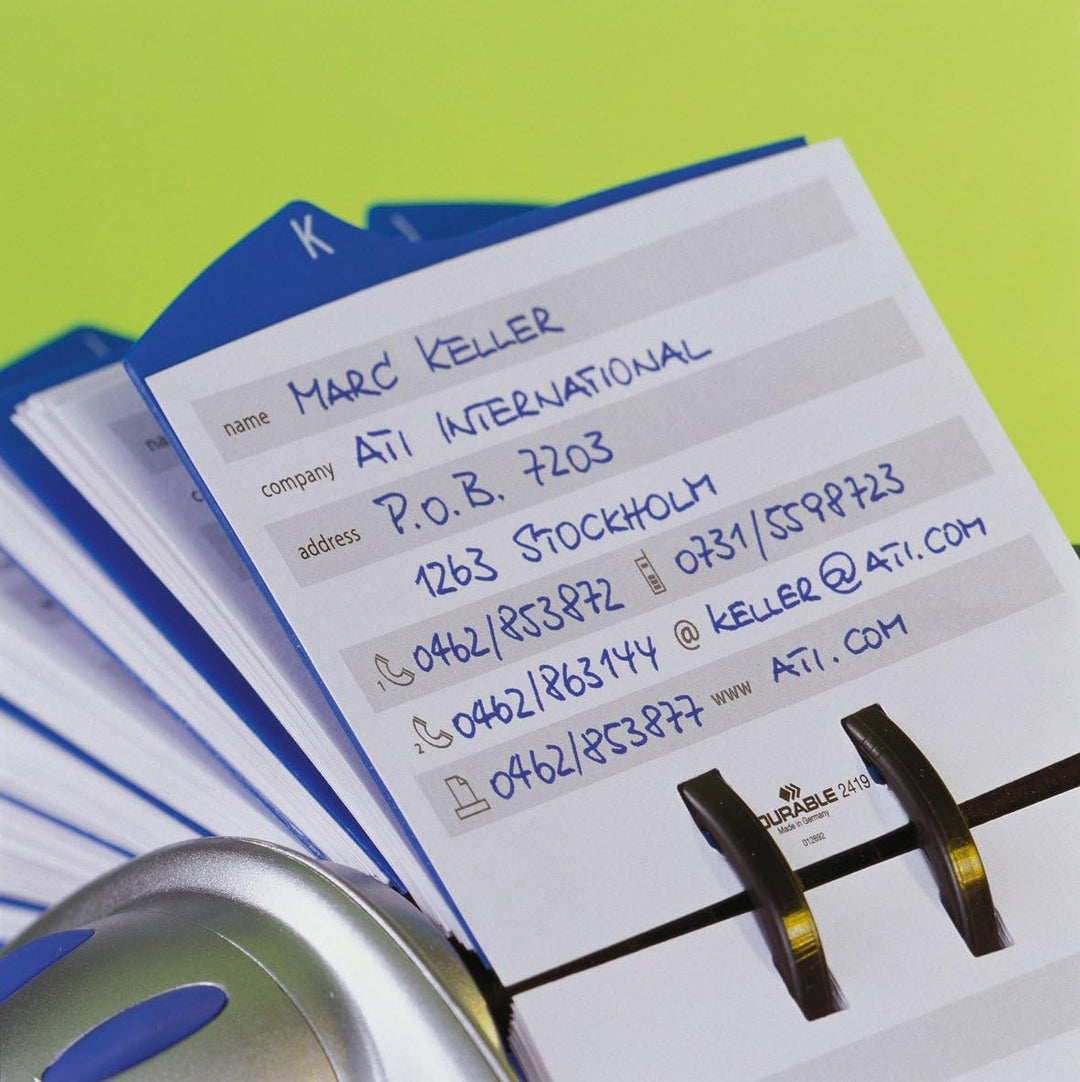 K
name MARC KELLER
company ATI INTERNATIONAL
address P.O.B. 7203
1263 STOCKHOLM
1 0462/853872 0731/5598723
2 0462/863144 @ KELLER@ATI.COM
0462/853877 www ATI.COM
DURABLE 2419
Made in Germany
012692
na
c